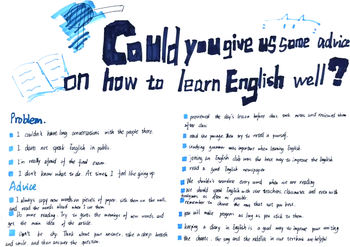 Could you give us some advice
on how to learn English well?
Problem.
I couldn't have long conversations with the people there.
I dare not speak English in public
I'm really afraid of the final exam
I don't know what to do. At times, I feel like giving up.
Advice
I always copy new words on pieces of paper, stick them on the wall,
and read the words aloud when I see them
Do more reading. Try to guess the meanings of new words, and
get the main idea of the article.
Don't be shy. Think about your answer, take a deep breath
and smile and then answer the question.
previewed the day's lesson before class, took notes and reviewed them
after class.
read the passage, then try to retell it yourself.
studying grammar was important when learning English.
joining an English club was the best way to improve the English.
read a good English newspaper
We shouldn't translate every word when we are reading
We should speak English with our teachers, classmates and even with
foreigners as often as possible.
remember to choose the ones that suit you.
you will make progress as long as you stick to them.
keeping a diary in English is a good way to improve your writing
the chants, the song and the riddles in our textbook are helpful